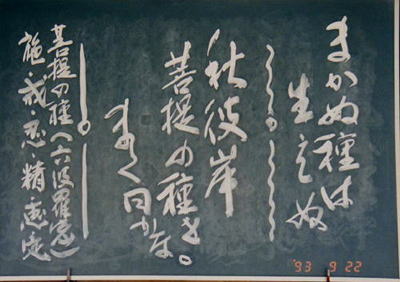 まかぬ種は
生えぬ
秋彼岸
菩提の種を。
まく日かな
菩提の種(六波羅蜜)
施・戒・忍・精・
'93 9 22